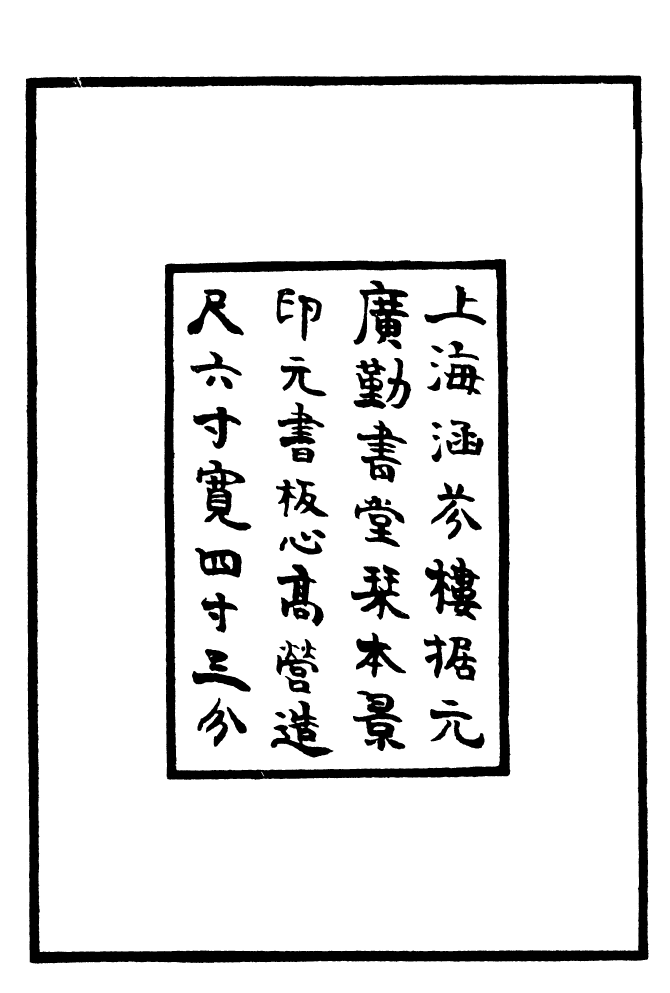 上海涵芬樓据元
廣勤書堂栞本景
印元書板心高營造
尺六寸寬四寸三分